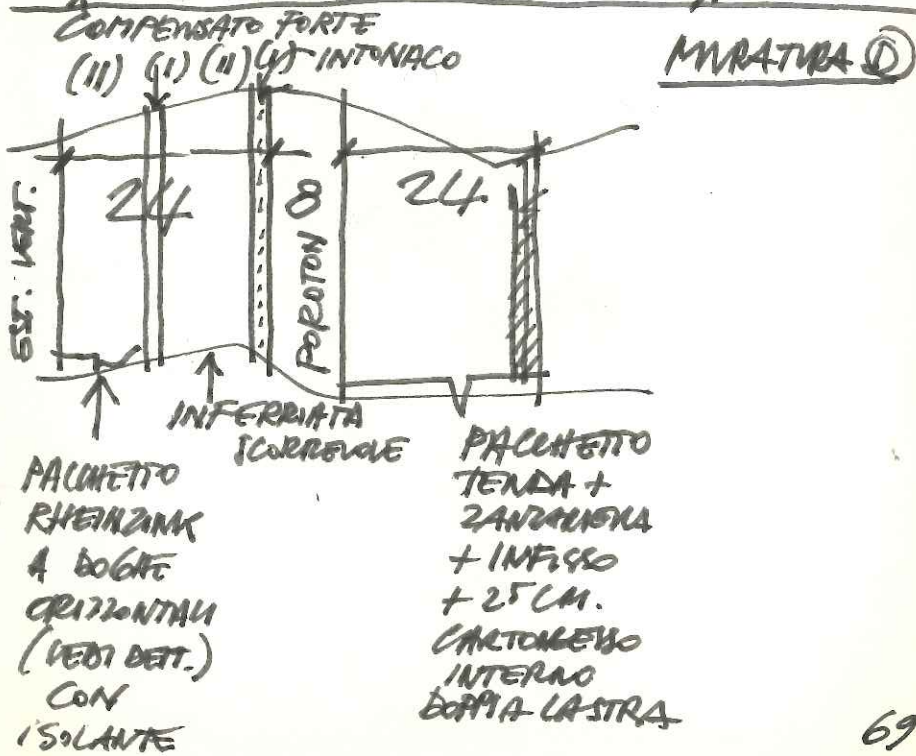 COMPENSATO FORTE
(11) (1) (11) (1) INTONACO
MURATURA D
EST. VERT.
24
POROTON 8
24
INFERRIATA
SCORREVOLE
PACCHETTO
RHEINZINK
A DOGHE
ORIZZONTALI
(VEDI DETT.)
CON
ISOLANTE
PACCHETTO
TENDA +
ZANZARIERA
+ INFISSO
+ 25 CM.
CARTONGESSO
INTERNO
DOPPIA LASTRA
69